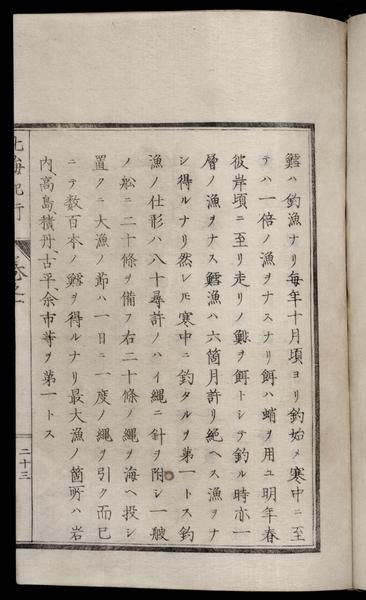 鱈ハ釣漁ナリ毎年十月頃ヨリ釣始メ寒中ニ至
テハ一倍ノ漁ヲナスナリ餌ハ蛸ヲ用ユ明年春
彼岸頃ニ至リ走リノ鯡ヲ餌トシテ釣ル時亦一
層ノ漁ヲナス鱈漁ハ六箇月許リ絶ヘス漁ヲナ
シ得ルナリ然レ𪜈寒中ニ釣タルヲ第一トス釣
漁ノ仕形ハ八十尋許ノハイ縄ニ針ヲ附シ一艘
ノ舩ニ二十條ヲ備フ右二十條ノ縄ヲ海ヘ投シ
置クニ大漁ノ節ハ一日ニ一度ノ縄ヲ引ク而已
ニテ数百本ノ鱈ヲ得ルナリ最大漁ノ箇所ハ岩
内、高島、積丹、古平、余市等ヲ第一トス
北海紀行
巻之
二十三